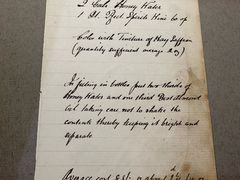 2 Gals Honey Water
1 Pt. Rect Spirits Wine 60 op
Color with Tincture of Hay Saffron
(quantity sufficient average 2 ℥)
In filling in bottles put two thirds of
Honey Water and one third Best Almond
Oil taking care not to shake the
contents thereby keeping it bright and
separate
cost
about